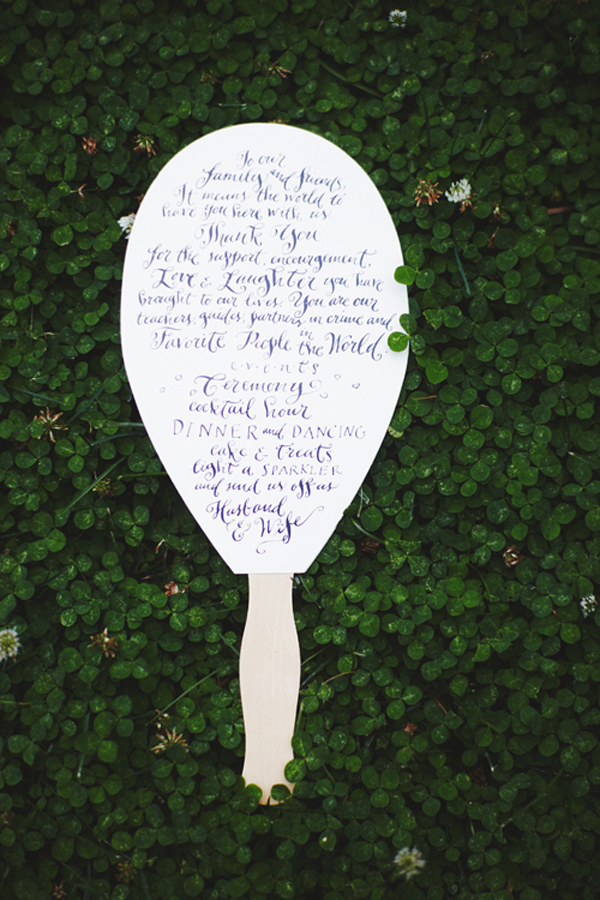 To our
families and friends,
It means the world to
have you here with us.
Thank You
for the support, encouragement,
Love & Laughter you have
brought to our lives. You are our
teachers, guides, partners in crime and
Favorite People in the World.
events
Ceremony
cocktail hour
DINNER and DANCING
cake & treats
light a SPARKLER
and send us off as
Husband
& Wife